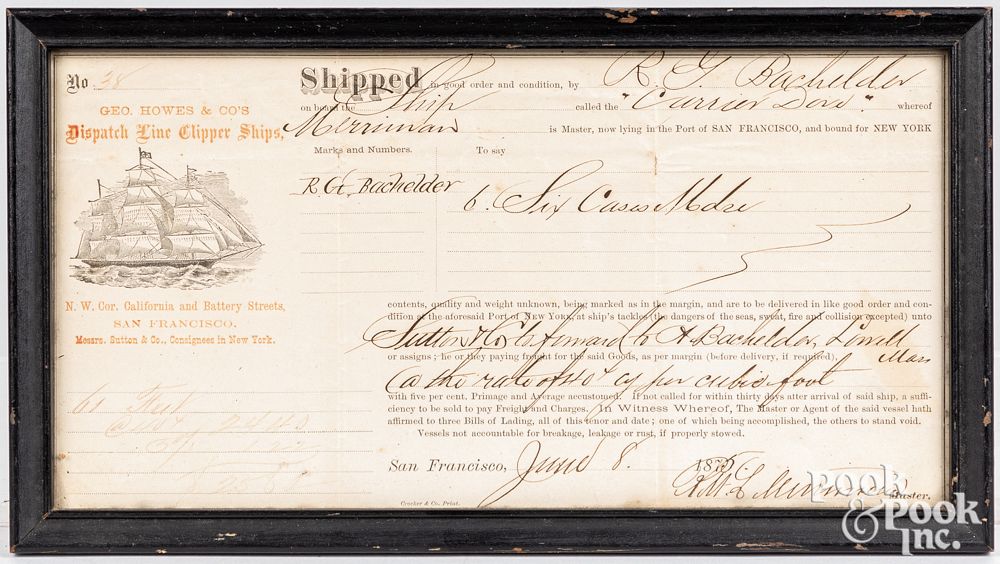 No. 38
GEO. HOWES & CO'S
Dispatch Line Clipper Ships,
N. W. Cor. California and Battery Streets,
SAN FRANCISCO.
Messrs. Sutton & Co., Consignees in New York.
Shipped in good order and condition, by R. G. Bachelder
on board the Ship called the "Carrier Dove" whereof
Merriman is Master, now lying in the Port of SAN FRANCISCO, and bound for NEW YORK
Marks and Numbers. To say
R. G. Bachelder
6. Six Cases Mdse
contents, quality and weight unknown, being marked as in the margin, and are to be delivered in like good order and con-
dition at the aforesaid Port of NEW YORK, at ship's tackles (the dangers of the seas, sweat, fire and collision excepted) unto
Sutton & Co to forward to A. Bachelder, Lowell Mass
or assigns; he or they paying freight for the said Goods, as per margin (before delivery, if required),
@ the rate of 40¢ per cubic foot
with five per cent. Primage and Average accustomed. If not called for within thirty days after arrival of said ship, a suffi-
ciency to be sold to pay Freight and Charges. In Witness Whereof, The Master or Agent of the said vessel hath
affirmed to three Bills of Lading, all of this tenor and date; one of which being accomplished, the others to stand void.
Vessels not accountable for breakage, leakage or rust, if properly stowed.
San Francisco, June 8. 1875
Merriman Master.
Crocker & Co. Print.
60 Feet
pook
& Pook
Inc.